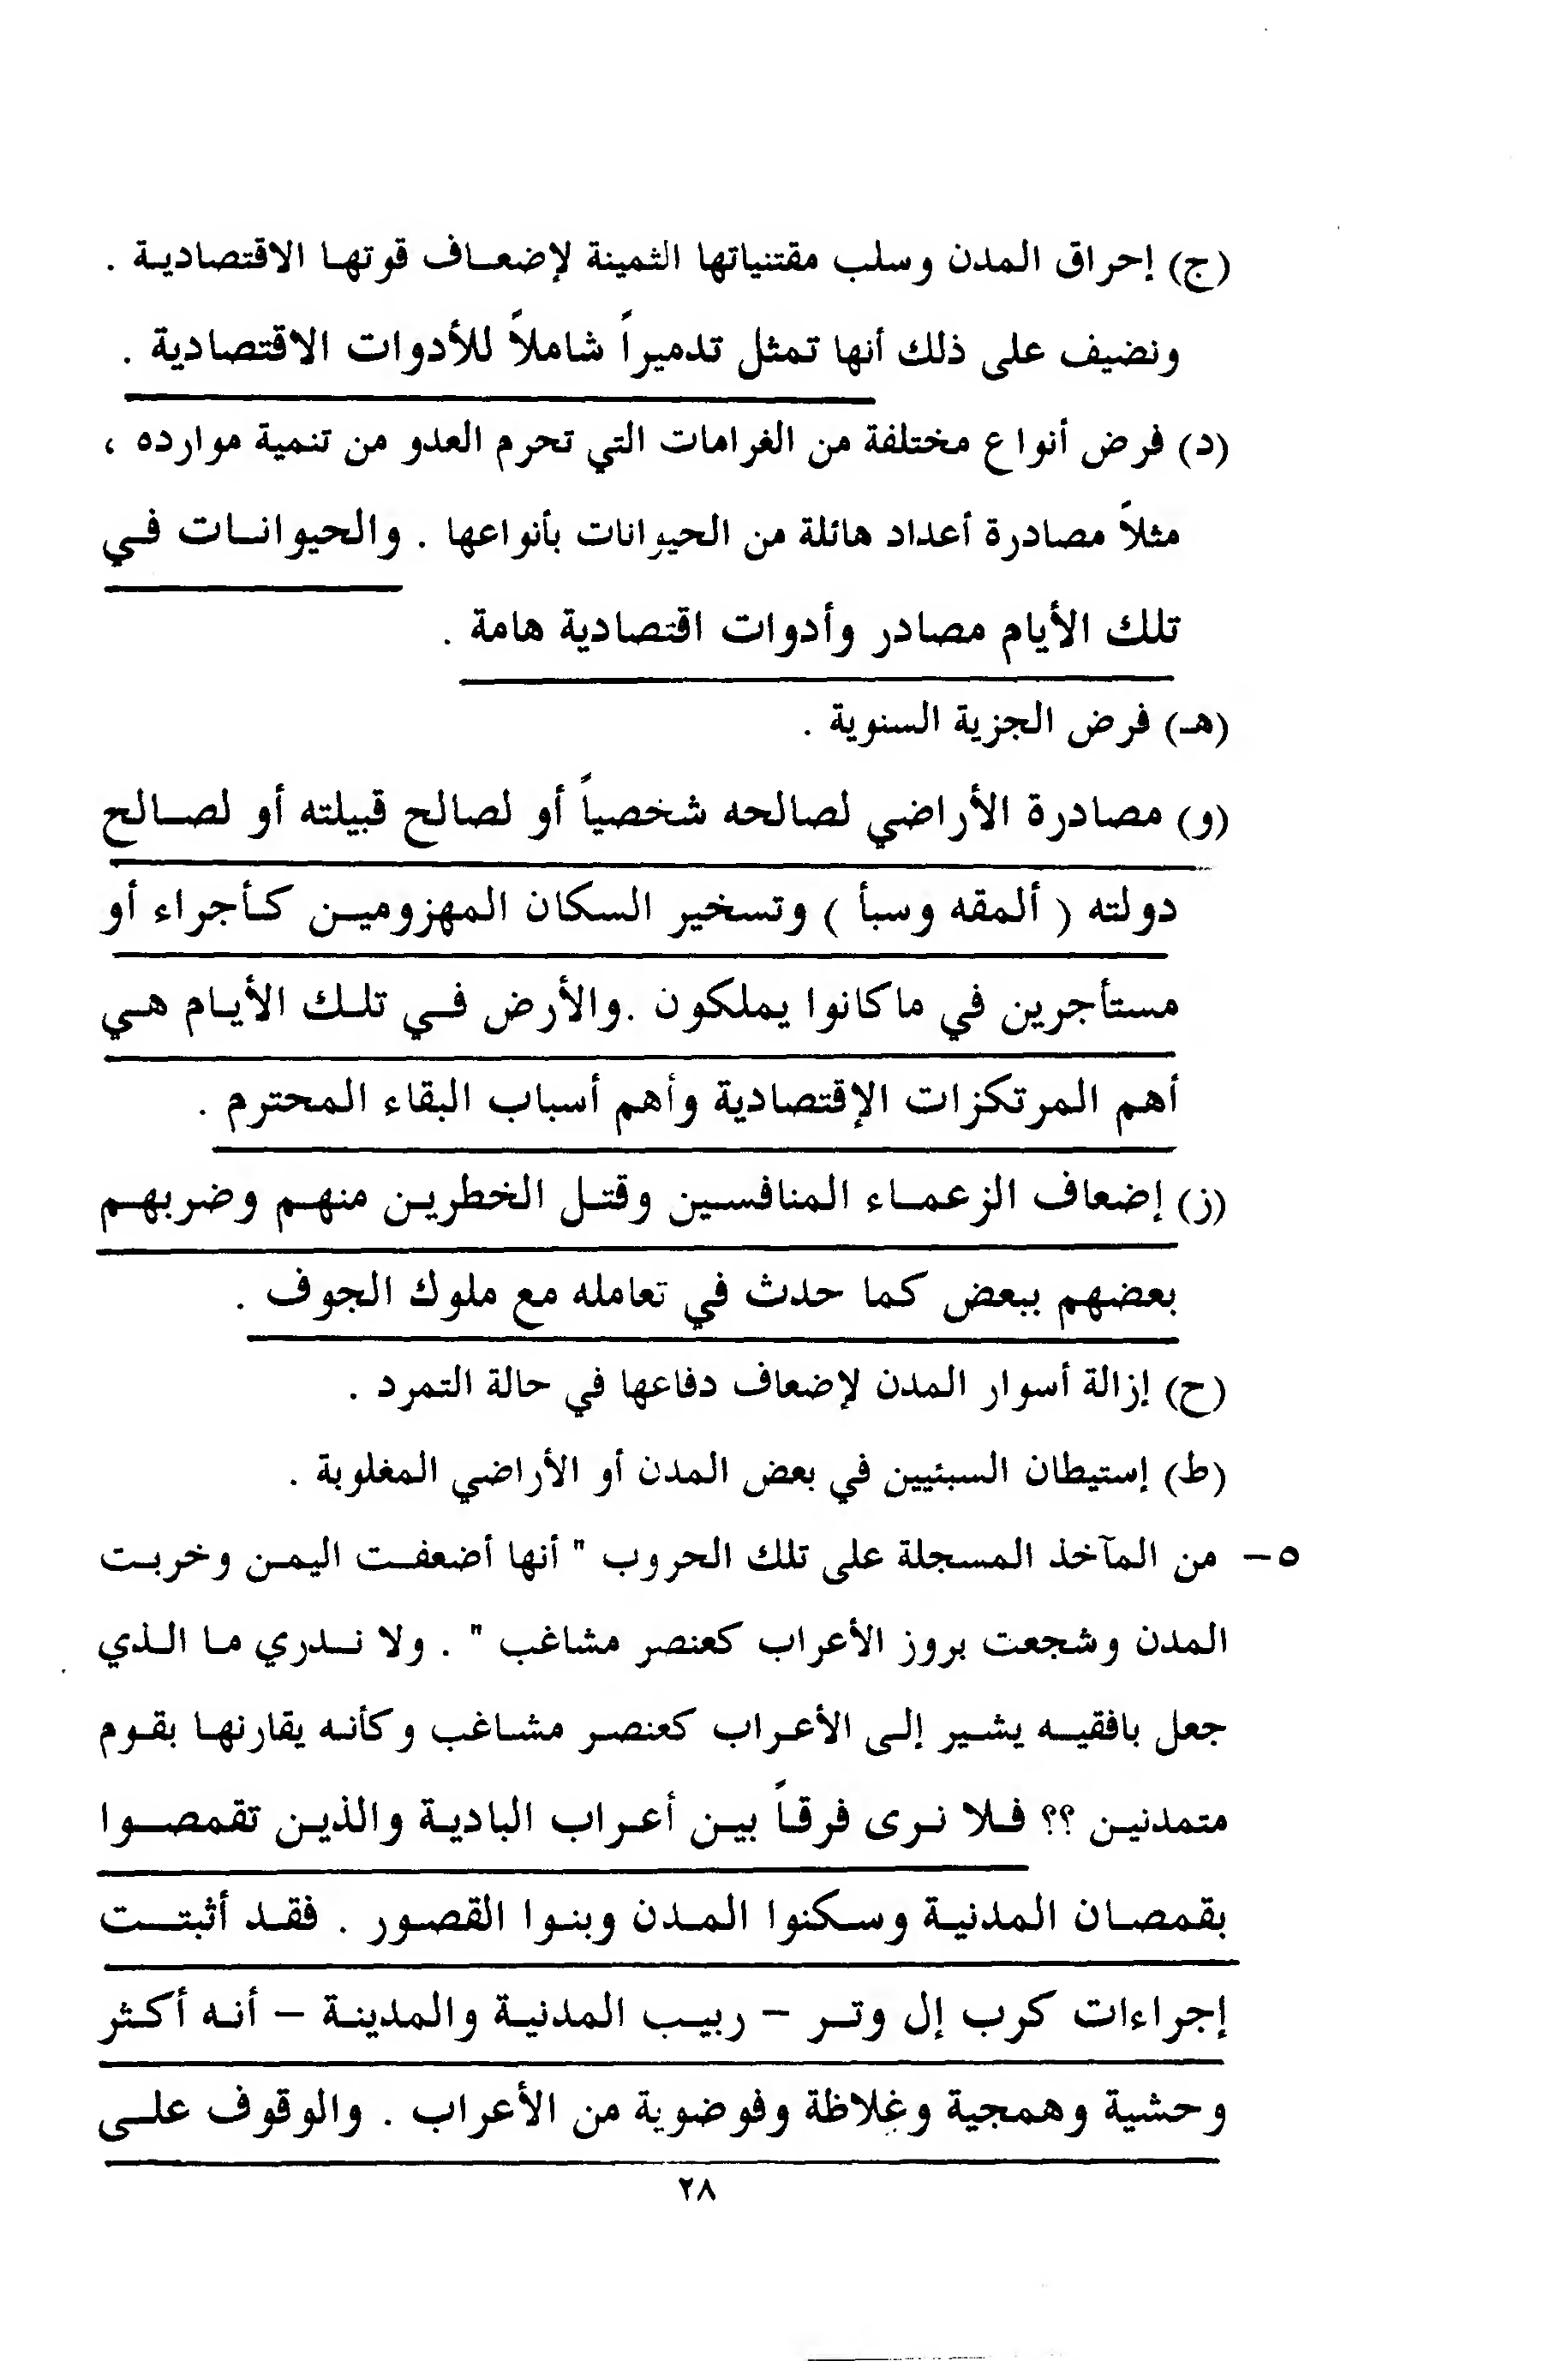 (ج) إحراق المدن وسلب مقتنياتها الثمينة لإضعاف قوتها الاقتصادية .
ونضيف على ذلك أنها تمثل تدميراً شاملاً للأدوات الاقتصادية .
(د) فرض أنواع مختلفة من الغرامات التي تحرم العدو من تنمية موارده ،
مثلاً مصادرة أعداد هائلة من الحيوانات بأنواعها . والحيوانات في
تلك الأيام مصادر وأدوات اقتصادية هامة .
(هـ) فرض الجزية السنوية .
(و) مصادرة الأراضي لصالحه شخصياً أو لصالح قبيلته أو لصالح
دولته ( ألمقه وسبأ ) وتسخير السكان المهزومين كأجراء أو
مستأجرين في ماكانوا يملكون .والأرض في تلك الأيام هي
أهم المرتكزات الإقتصادية وأهم أسباب البقاء المحترم .
(ز) إضعاف الزعماء المنافسين وقتل الخطرين منهم وضربهم
بعضهم ببعض كما حدث في تعامله مع ملوك الجوف .
(ح) إزالة أسوار المدن لإضعاف دفاعها في حالة التمرد .
(ط) إستيطان السبئيين في بعض المدن أو الأراضي المغلوبة .
٥- من المآخذ المسجلة على تلك الحروب " أنها أضعفت اليمن وخربت
المدن وشجعت بروز الأعراب كعنصر مشاغب " . ولا ندري ما الذي
جعل بافقيه يشير إلى الأعراب كعنصر مشاغب وكأنه يقارنها بقوم
متمدنين ؟؟ فلا نرى فرقاً بين أعراب البادية والذين تقمصوا
بقمصان المدنية وسكنوا المدن وبنوا القصور . فقد أثبتت
إجراءات كرب إل وتر – ربيب المدنية والمدينة – أنه أكثر
وحشية وهمجية وغلاظة وفوضوية من الأعراب . والوقوف على
٢٨